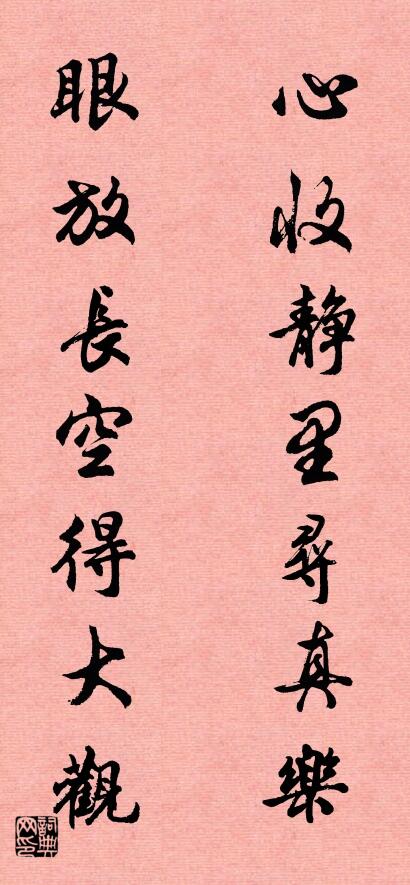 心收静里尋真樂
眼放長空得大觀
詞典网印